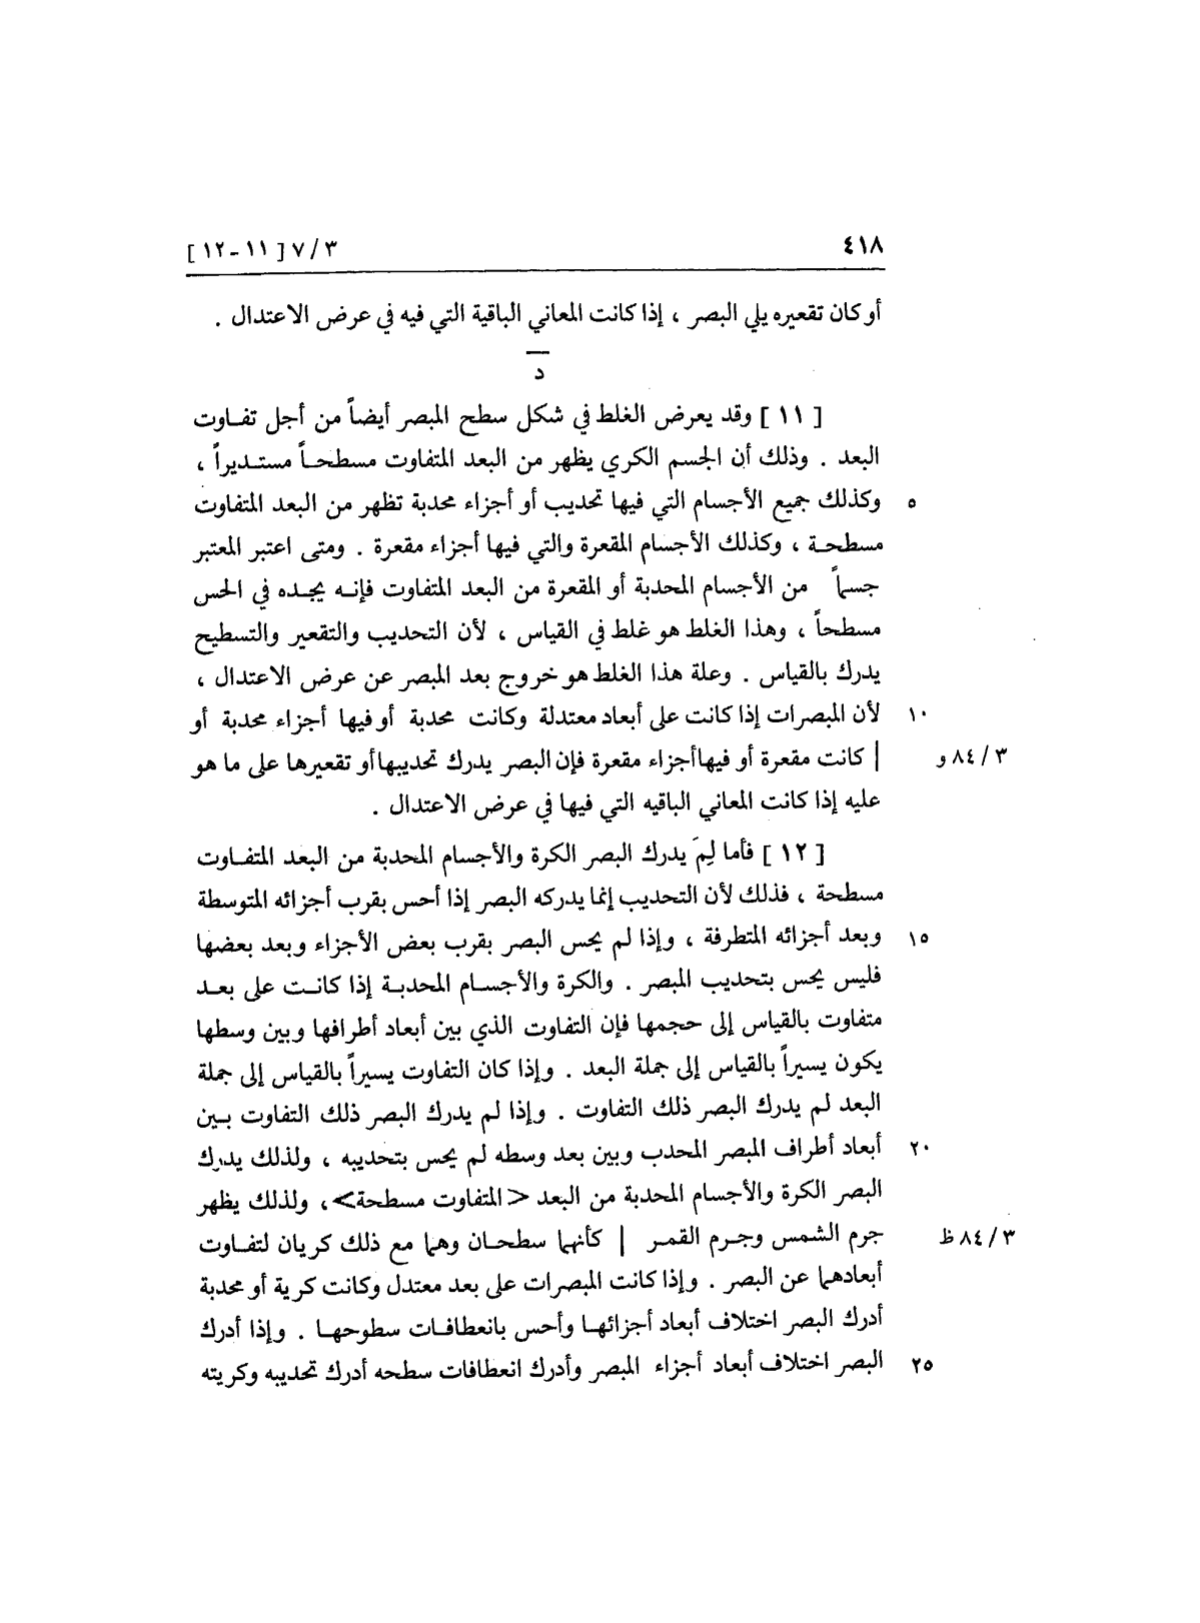 ٤١٨ ٣/ ٧ [ ١١ - ١٢ ]
أو كان تقعيره يلي البصر ، إذا كانت المعاني الباقية التي فيه في عرض الاعتدال .
د
[ ١١ ] وقد يعرض الغلط في شكل سطح المبصر أيضاً من أجل تفـاوت
البعد . وذلك أن الجسم الكري يظهر من البعد المتفاوت مسطحـاً مستـديراً ،
٥ وكذلك جميع الأجسام التي فيها تحديب أو أجزاء محدبة تظهر من البعد المتفاوت
مسطحـة ، وكذلك الأجسام المقعرة والتي فيها أجزاء مقعرة . ومتى اعتبر المعتبر
جسماً من الأجسام المحدبة أو المقعرة من البعد المتفاوت فإنـه يجـده في الحس
مسطحاً ، وهذا الغلط هو غلط في القياس ، لأن التحديب والتقعير والتسطيح
يدرك بالقياس . وعلة هذا الغلط هو خروج بعد المبصر عن عرض الاعتدال ،
١٠ لأن المبصرات إذا كانت على أبعاد معتدلة وكانت محدبة أو فيها أجزاء محدبة أو
٣/ ٨٤ و | كانت مقعرة أو فيها أجزاء مقعرة فإن البصر يدرك تحديبها أو تقعيرها على ما هو
عليه إذا كانت المعاني الباقيه التي فيها في عرض الاعتدال .
[ ١٢ ] فأما لِمَ يدرك البصر الكرة والأجسام المحدبة من البعد المتفـاوت
مسطحة ، فذلك لأن التحديب إنما يدركه البصر إذا أحس بقرب أجزائه المتوسطة
١٥ وبعد أجزائه المتطرفة ، وإذا لم يحس البصر بقرب بعض الأجزاء وبعد بعضها
فليس يحس بتحديب المبصر . والكرة والأجسـام المحدبـة إذا كانـت على بعـد
متفاوت بالقياس إلى حجمها فإن التفاوت الذي بين أبعاد أطرافها وبين وسطها
يكون يسيراً بالقياس إلى جملة البعد . وإذا كان التفاوت يسيراً بالقياس إلى جملة
البعد لم يدرك البصر ذلك التفاوت . وإذا لم يدرك البصر ذلك التفاوت بـين
٢٠ أبعاد أطراف المبصر المحدب وبين بعد وسطه لم يحس بتحديبه ، ولذلك يدرك
البصر الكرة والأجسام المحدبة من البعد <المتفاوت مسطحة> ، ولذلك يظهر
٣/ ٨٤ ظ جرم الشمس وجـرم القمـر | كأنهما سطحـان وهما مع ذلك كريان لتفـاوت
أبعادهما عن البصر . وإذا كانت المبصرات على بعد معتدل وكانت كرية أو محدبة
أدرك البصر اختلاف أبعاد أجزائهـا وأحس بانعطافـات سطوحهـا . وإذا أدرك
٢٥ البصر اختلاف أبعاد أجزاء المبصر وأدرك انعطافات سطحه أدرك تحديبه وكريته